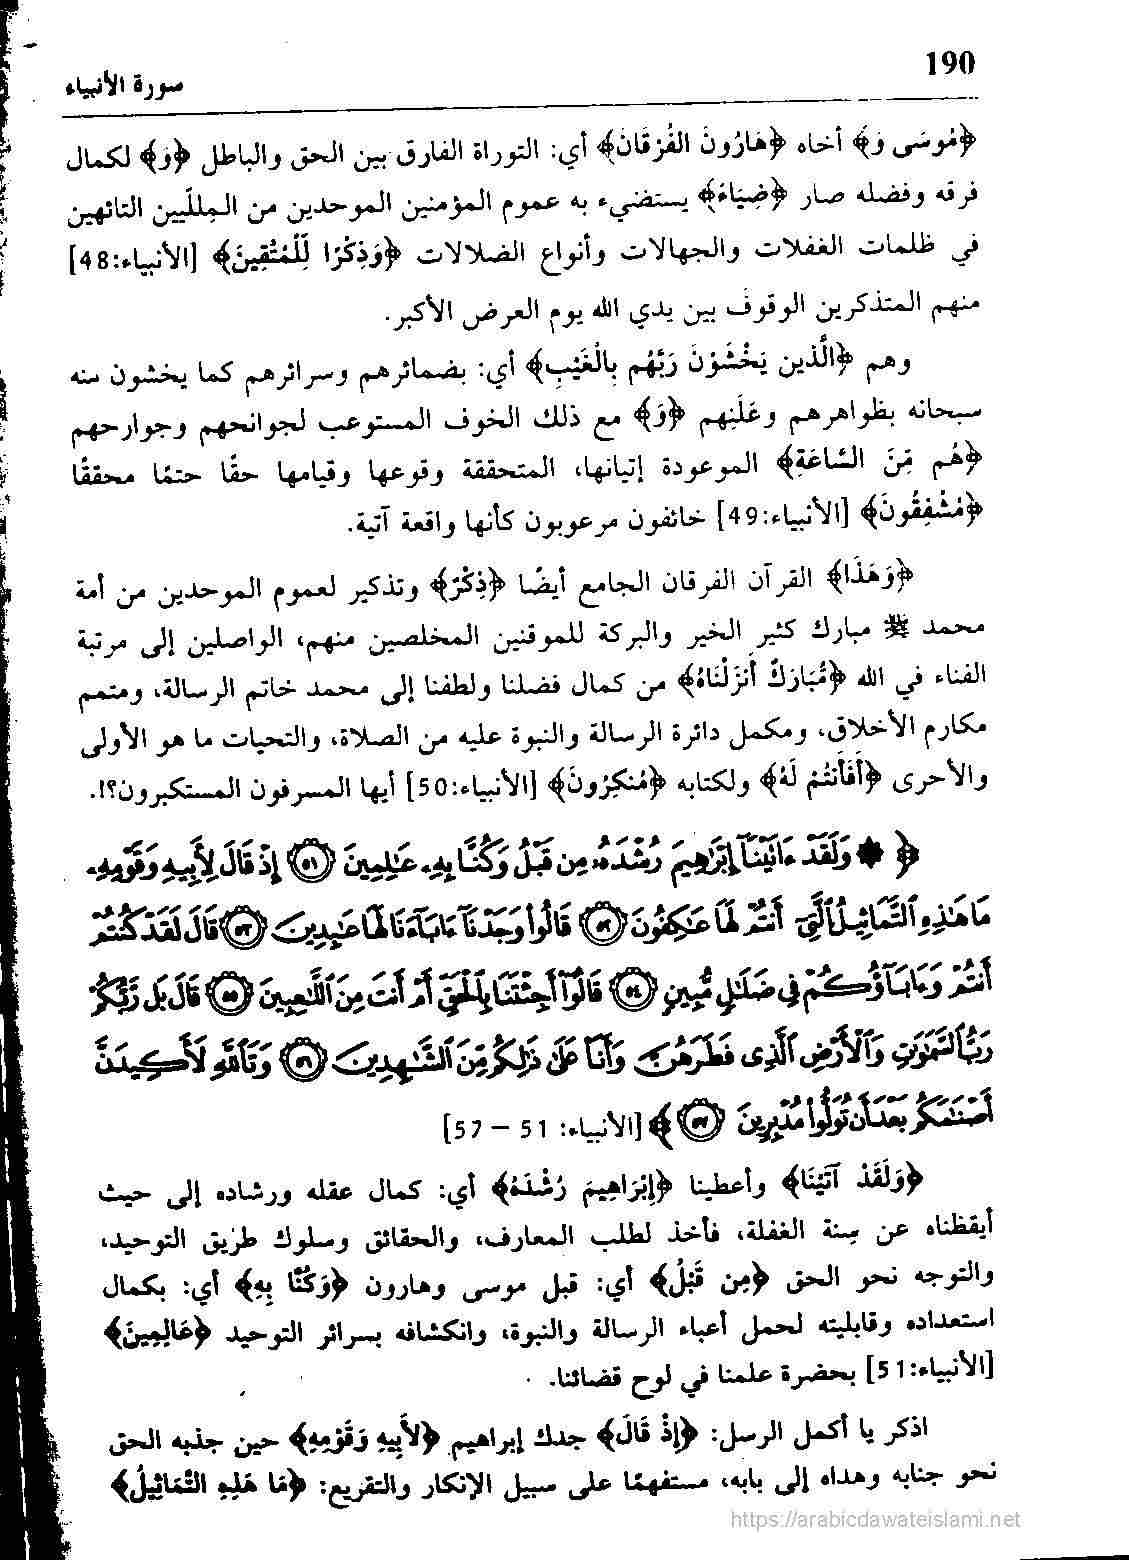 190
سورة الأنبياء
﴿مُوسَى وَ﴾ أخاه ﴿هَارُونَ الفُرْقَانَ﴾ أي: التوراة الفارق بين الحق والباطل ﴿وَ﴾ لكمال
فرقه وفضله صار ﴿ضِيَاءً﴾ يستضيء به عموم المؤمنين الموحدين من المِللّيين التائهين
في ظلمات الغفلات والجهالات وأنواع الضلالات ﴿وَذِكْرًا لِّلْمُتَّقِينَ﴾ [الأنبياء:48]
منهم المتذكرين الوقوفَ بين يدي الله يوم العرض الأكبر.
وهم ﴿الَّذين يَخْشَوْنَ رَبَّهُم بِالْغَيْبِ﴾ أي: بضمائرهم وسرائرهم كما يخشون منه
سبحانه بظواهرهم وعَلَنِهم ﴿وَ﴾ مع ذلك الخوف المستوعب لجوانحهم وجوارحهم
﴿هُم مِّنَ السَّاعَةِ﴾ الموعودة إتيانها، المتحققة وقوعها وقيامها حقًا حتمًا محققًا
﴿مُشْفِقُونَ﴾ [الأنبياء:49] خائفون مرعوبون كأنها واقعة آتية.
﴿وَهَذَا﴾ القرآن الفرقان الجامع أيضًا ﴿ذِكْرٌ﴾ وتذكير لعموم الموحدين من أمة
محمد ﷺ مبارك كثير الخير والبركة للموقنين المخلصين منهم، الواصلين إلى مرتبة
الفناء في الله ﴿مُّبَارَكٌ أَنزَلْنَاهُ﴾ من كمال فضلنا ولطفنا إلى محمد خاتم الرسالة، ومتمم
مكارم الأخلاق، ومكمل دائرة الرسالة والنبوة عليه من الصلاة، والتحيات ما هو الأولى
والأحرى ﴿أَفَأَنتُمْ لَهُ﴾ ولكتابه ﴿مُنكِرُونَ﴾ [الأنبياء:50] أيها المسرفون المستكبرون؟!.
﴿ ۞ وَلَقَدْ ءَاتَيْنَآ إِبْرَٰهِيمَ رُشْدَهُۥ مِن قَبْلُ وَكُنَّا بِهِۦ عَٰلِمِينَ ۝٥١ إِذْ قَالَ لِأَبِيهِ وَقَوْمِهِۦ
مَا هَٰذِهِ التَّمَاثِيلُ الَّتِىٓ أَنتُمْ لَهَا عَٰكِفُونَ ۝٥٢ قَالُوا۟ وَجَدْنَآ ءَابَآءَنَا لَهَا عَٰبِدِينَ ۝٥٣ قَالَ لَقَدْ كُنتُمْ
أَنتُمْ وَءَابَآؤُكُمْ فِى ضَلَٰلٍ مُّبِينٍ ۝٥٤ قَالُوٓا۟ أَجِئْتَنَا بِالْحَقِّ أَمْ أَنتَ مِنَ اللَّٰعِبِينَ ۝٥٥ قَالَ بَل رَّبُّكُمْ
رَبُّ السَّمَٰوَٰتِ وَالْأَرْضِ الَّذِى فَطَرَهُنَّ وَأَنَا۠ عَلَىٰ ذَٰلِكُم مِّنَ الشَّٰهِدِينَ ۝٥٦ وَتَاللَّهِ لَأَكِيدَنَّ
أَصْنَٰمَكُم بَعْدَ أَن تُوَلُّوا۟ مُدْبِرِينَ ۝٥٧ ﴾ [الأنبياء: 51 – 57]
﴿وَلَقَدْ آتَيْنَا﴾ وأعطينا ﴿إِبْرَاهِيمَ رُشْدَهُ﴾ أي: كمال عقله ورشاده إلى حيث
أيقظناه عن سِنة الغفلة، فأخذ لطلب المعارف، والحقائق وسلوك طريق التوحيد،
والتوجه نحو الحق ﴿مِن قَبْلُ﴾ أي: قبل موسى وهارون ﴿وَكُنَّا بِهِ﴾ أي: بكمال
استعداده وقابليته لحمل أعباء الرسالة والنبوة، وانكشافه بسرائر التوحيد ﴿عَالِمِينَ﴾
[الأنبياء:51] بحضرة علمنا في لوح قضائنا.
اذكر يا أكمل الرسل: ﴿إِذْ قَالَ﴾ جدك إبراهيم ﴿لأَبِيهِ وَقَوْمِهِ﴾ حين جذبه الحق
نحو جنابه وهداه إلى بابه، مستفهمًا على سبيل الإنكار والتقريع: ﴿مَا هَذِهِ التَّمَاثِيلُ﴾
https://arabicdawateislami.net